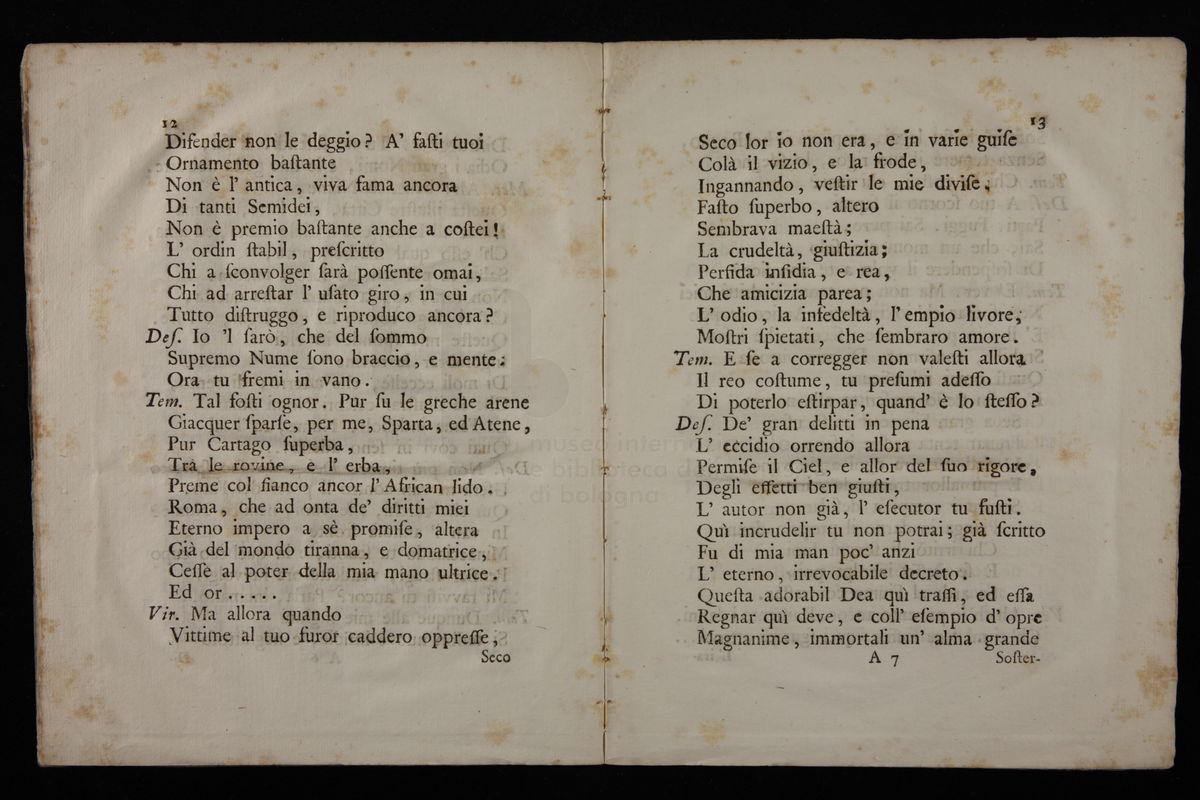 12
Difender non le deggio? A' faſti tuoi
Ornamento baſtante
Non è l' antica, viva fama ancora
Di tanti Semidei,
Non è premio baſtante anche a coſtei!
L' ordin ſtabil, preſcritto
Chi a ſconvolger farà poſſente omai,
Chi ad arreſtar l' uſato giro, in cui
Tutto diſtruggo, e riproduco ancora?
Deſ. Io 'l ſarò, che del ſommo
Supremo Nume ſono braccio, e mente:
Ora tu fremi in vano.
Tem. Tal foſti ognor. Pur ſu le greche arene
Giacquer ſparſe, per me, Sparta, ed Atene,
Pur Cartago ſuperba,
Trà le rovine, e l' erba,
Preme col fianco ancor l' African lido.
Roma, che ad onta de' diritti miei
Eterno impero a sè promiſe, altera
Già del mondo tiranna, e domatrice,
Ceſſe al poter della mia mano ultrice.
Ed or . . . . .
Vir. Ma allora quando
Vittime al tuo furor caddero oppreſſe,
Seco
13
Seco lor io non era, e in varie guiſe
Colà il vizio, e la frode,
Ingannando, veſtir le mie diviſe,
Faſto ſuperbo, altero
Sembrava maeſtà;
La crudeltà, giuſtizia;
Perfida inſidia, e rea,
Che amicizia parea;
L' odio, la infedeltà, l' empio livore,
Moſtri ſpietati, che ſembraro amore.
Tem. E ſe a corregger non valeſti allora
Il reo coſtume, tu preſumi adeſſo
Di poterlo eſtirpar, quand' è lo ſteſſo?
Deſ. De' gran delitti in pena
L' eccidio orrendo allora
Permiſe il Ciel, e allor del ſuo rigore,
Degli effetti ben giuſti,
L' autor non già, l' eſecutor tu fuſti.
Quì incrudelir tu non potrai; già ſcritto
Fu di mia man poc' anzi
L' eterno, irrevocabile decreto.
Queſta adorabil Dea quì traſſi, ed eſſa
Regnar quì deve, e coll' eſempio d' opre
Magnanime, immortali un' alma grande
A 7 Soſter-